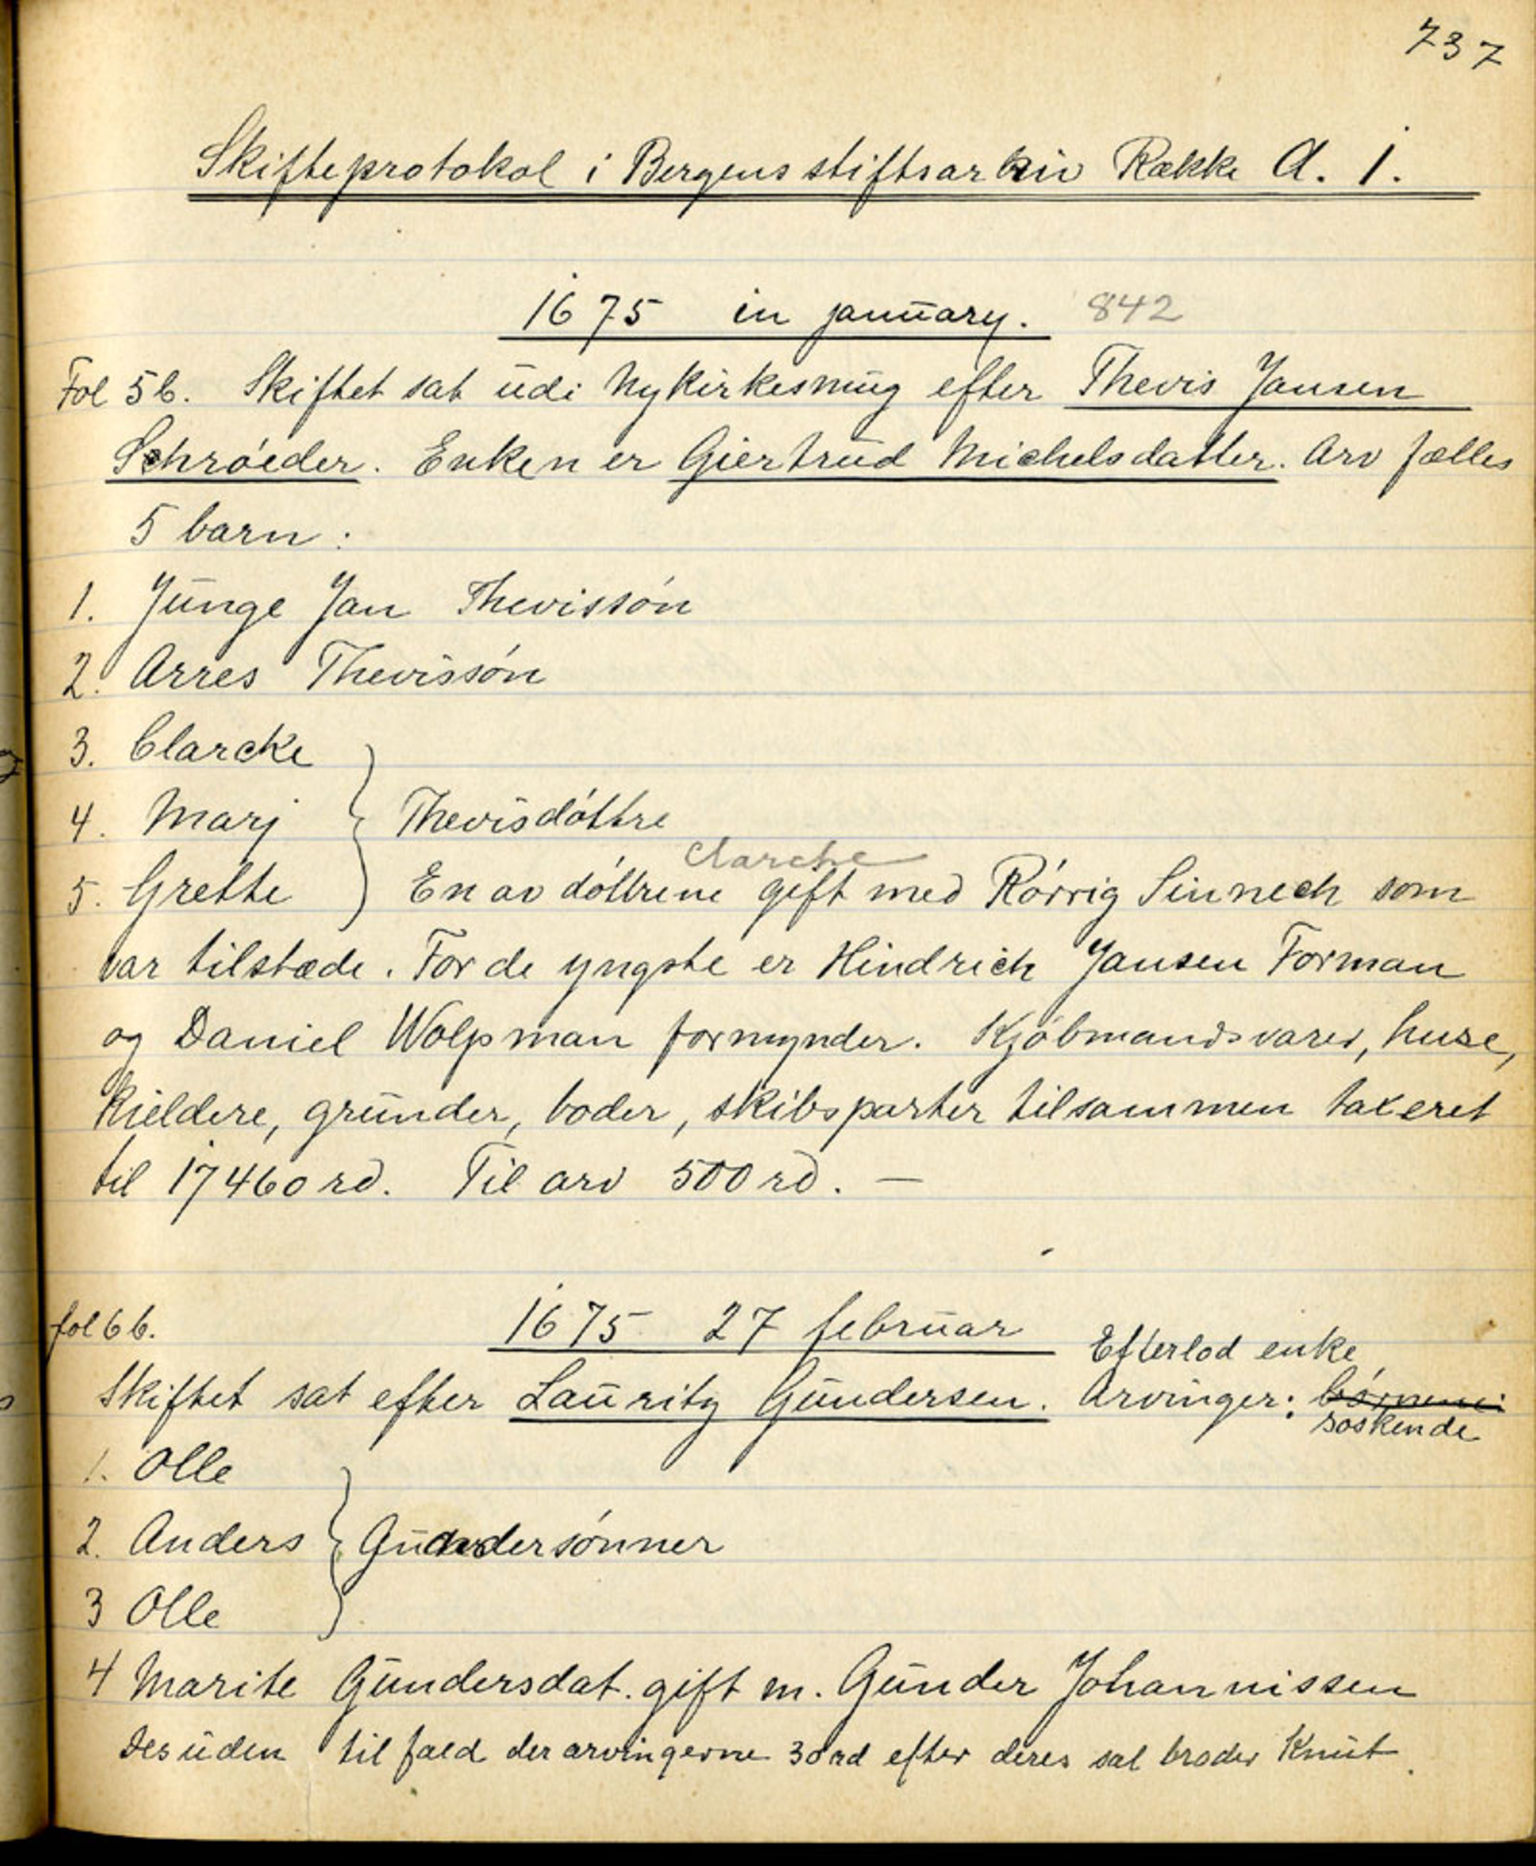 737
Skifteprotokol i Bergens stiftsarkiv Række A. 1.
1675 in january. 842
Fol 5b. Skiftet sat udi Nykirkesmug efter Thevis Jansen
Schrøeder. Enken er Giertrud Michelsdatter. Arv fælles
5 barn:
1. Junge Jan Thevissøn
2. Arres Thevissøn
3. Clarcke
4. Marj } Thevisdøttre
Clarcke
5. Grette } En av døttrene gift med Rørrig Sinnech som
var tilstæde. For de yngste er Hindrich Jansen Forman
og Daniel Wolpsman formynder. Kjøbmandsvarer, huse,
Kieldere, grunder, boder, skibsparter tilsammen taxeret
til 17460 rd. Til arv 500 rd. —
fol 6b. 1675 27 februar
Efterlod enke
Skiftet sat efter Lauritz Gundersen. Arvinger: børnene:
søskende
1. Olle
2. Anders } Gundersønner
3 Olle
4 Marite Gundersdat. gift m. Gunder Johannissen
Desuden tilfald der arvingerne 30 rd efter deres sal broder Knut.